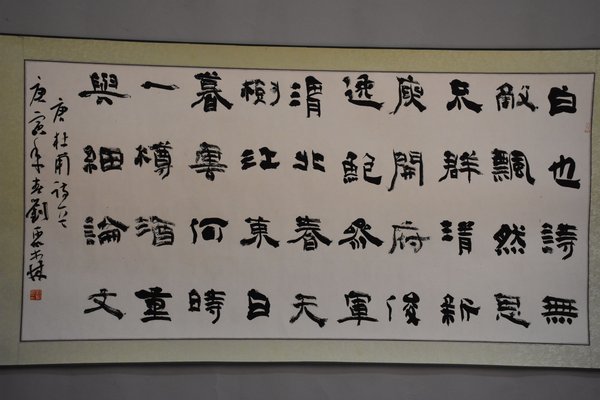 白也詩無
敵飄然思
不群清新
庾開府俊
逸鮑參軍
渭北春天
樹江東日
暮雲何時
一樽酒重
與細論文
唐杜甫詩
庚寅年春劉